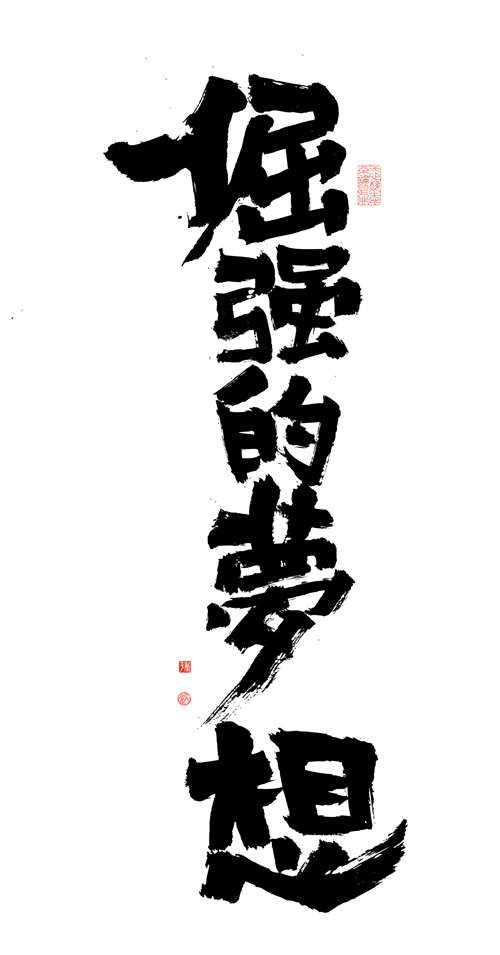 倔强的夢想